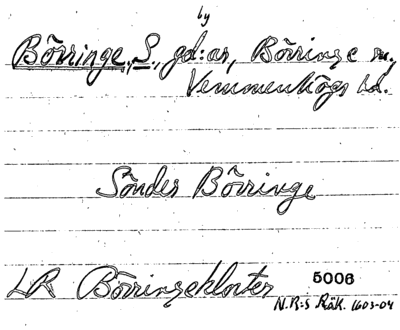 by
Börringe, S., gd:ar, Börringe sn.,
Vemmenhögs hd.
Sönder Börringe
LR Börringekloster 5006
N.R-s Räk. 1603-04